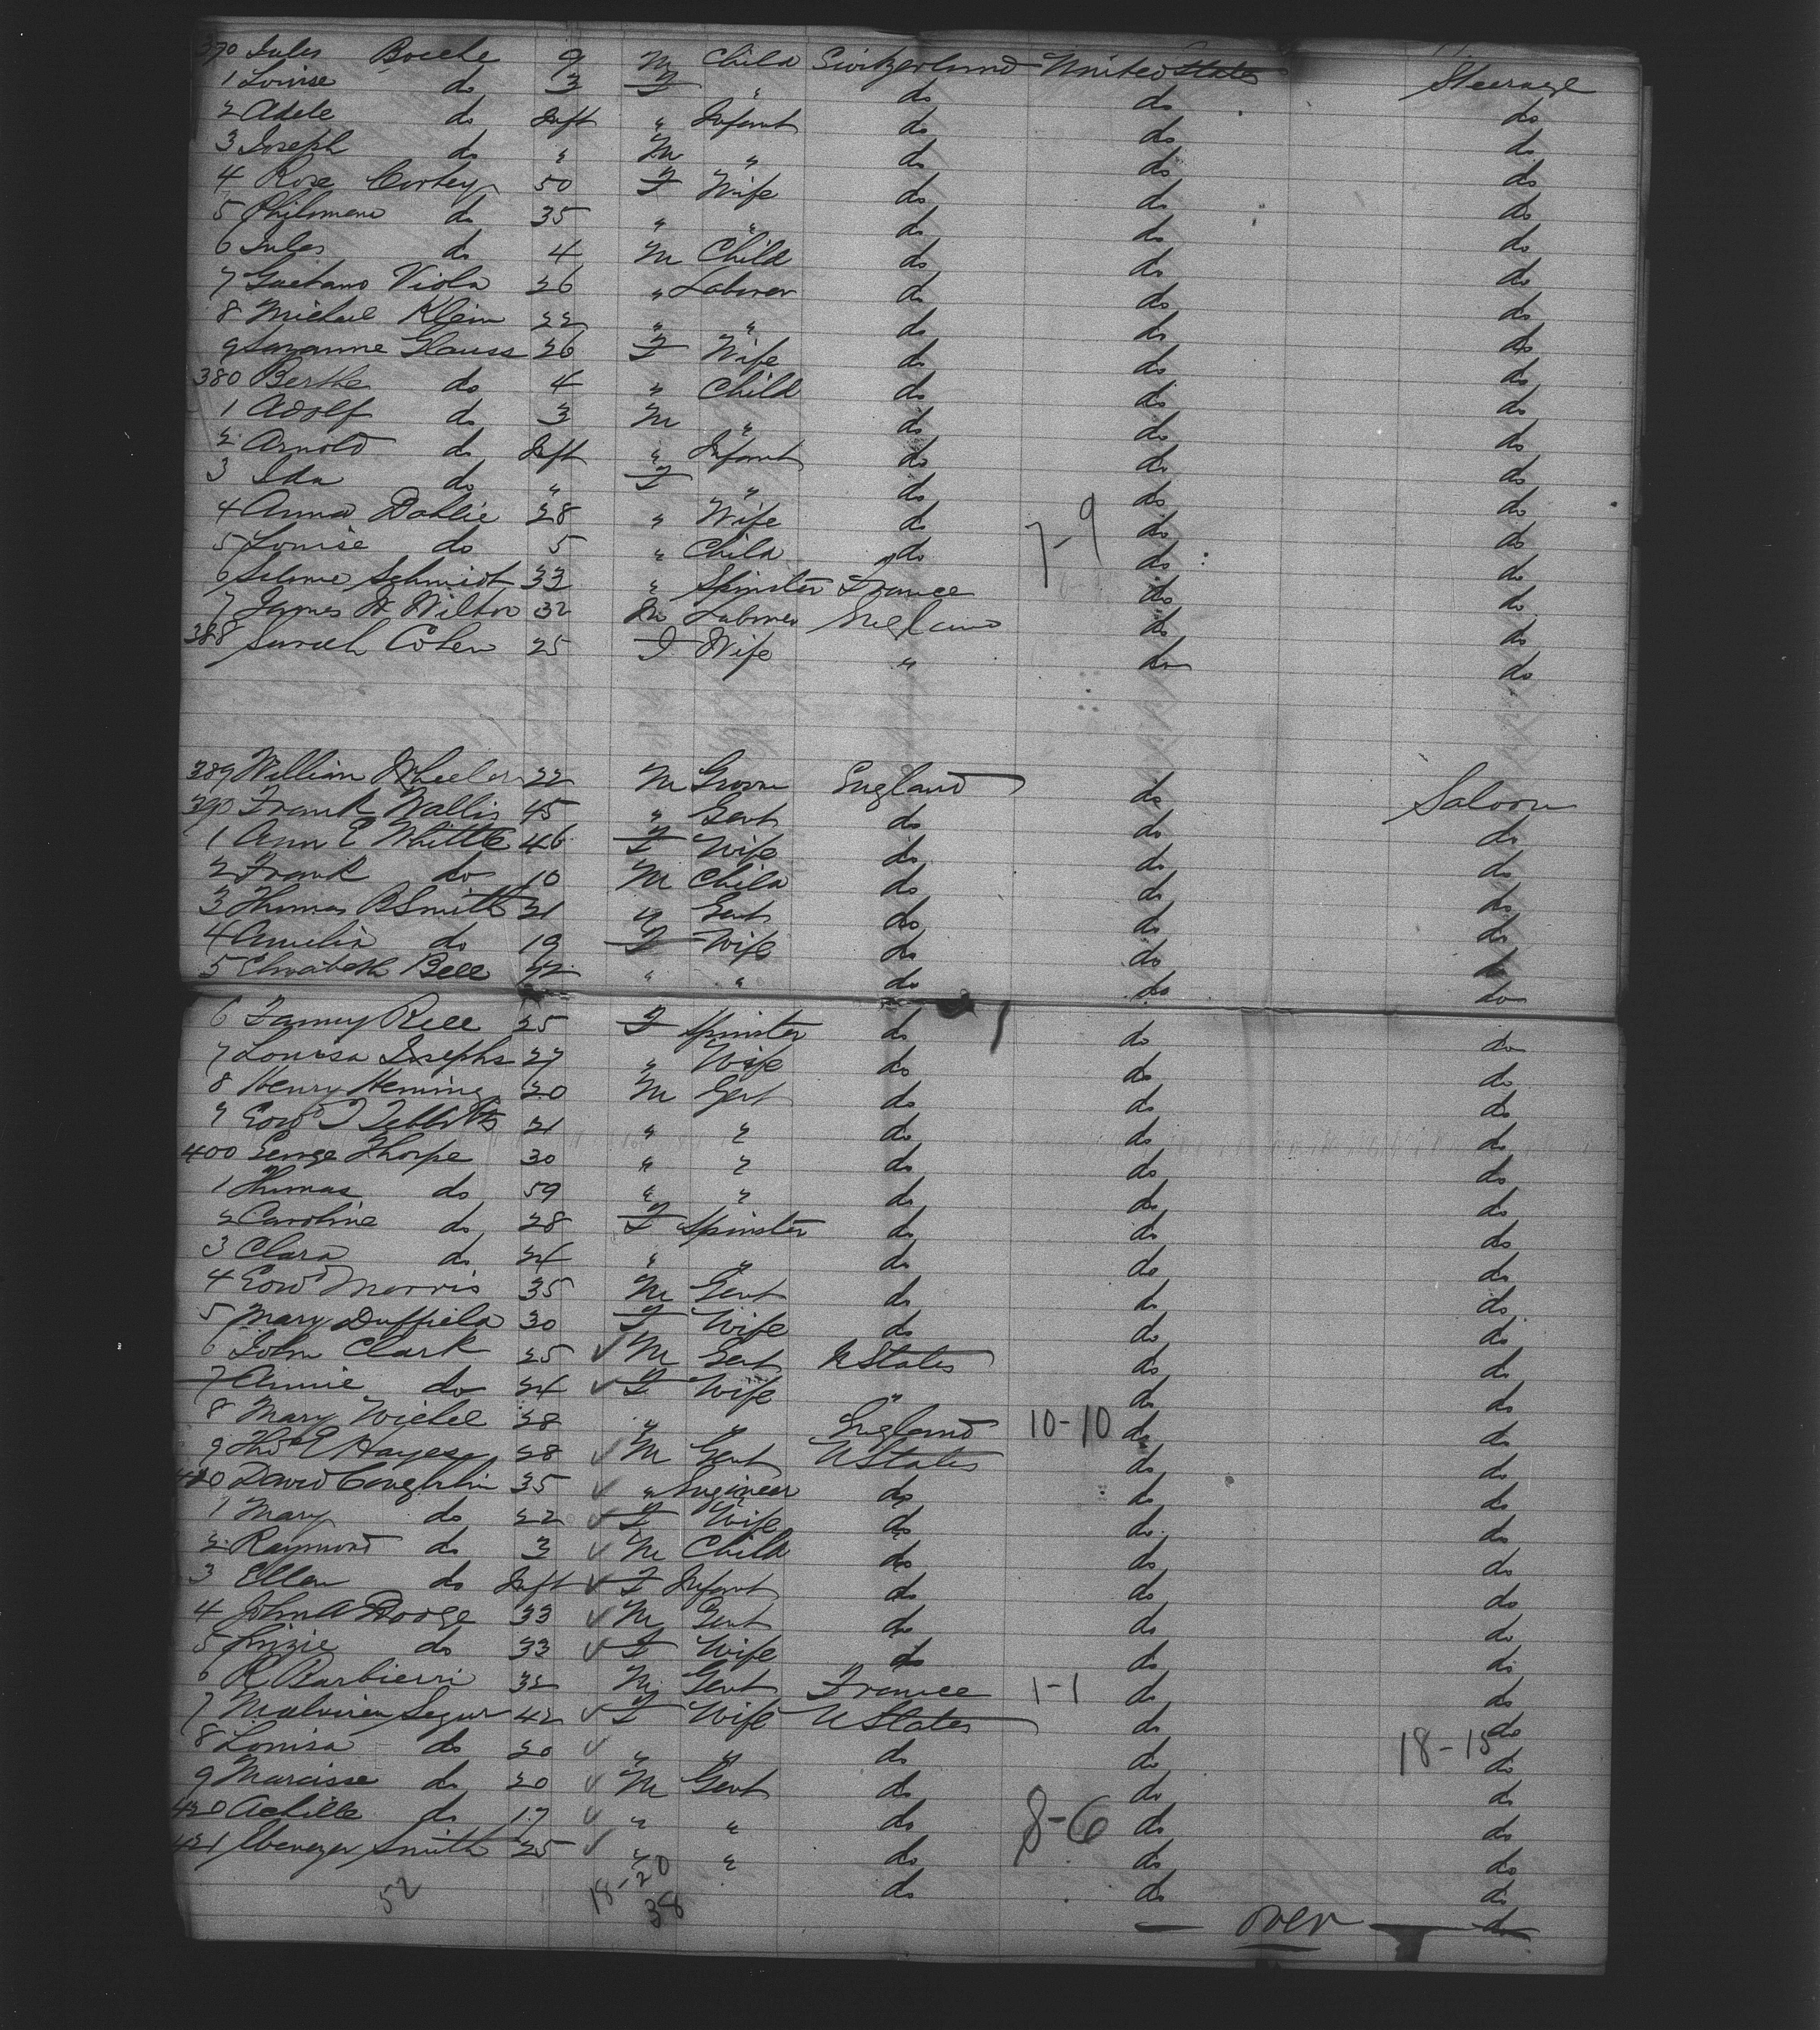 370 Jules Boechle 9 M Child Switzerland United States Steerage
1 Louise do 3 F " do do do
2 Adele do Inft " Infant do do do
3 Joseph do " M " do do do
4 Rose Cortey 50 F Wife do do do
5 Philomene do 35 " " do do do
6 Jules do 4 M Child do do do
7 Gaetano Viola 26 " Laborer do do do
8 Michael Klein 22 " " do do do
9 Suzanne Glauss 26 F Wife do do do
380 Berthe do 4 " Child do do do
1 Adolf do 3 M " do do do
2 Arnold do Inft " Infant do do do
3 Ida do " F " do do do
4 Anna Dahlie 28 " Wife do do do
5 Louise do 5 " Child do 7-9 do do
6 Salome Schmidt 33 " Spinster France do do
7 James W Wilton 32 M Laborer England do do
388 Sarah Cohen 25 F Wife " do do
389 William Wheeler 22 M Groom England do Saloon
390 Frank Wallis 45 " Gent do do do
1 Ann E Whittle 46 F Wife do do do
2 Frank do 10 M Child do do do
3 Thomas B Smith 31 " Gent do do do
4 Amelia do 19 F Wife do do do
5 Elizabeth Bell 42 " " do do do
6 Fanny Rice 25 F Spinster do do do
7 Louisa Josephs 27 " Wife do do do
8 Henry Heming 20 M Gent do do do
9 Edwd T Tebbitts 21 " " do do do
400 George Thorpe 30 " " do do do
1 Thomas do 59 " " do do do
2 Caroline do 28 F Spinster do do do
3 Clara do 24 " " do do do
4 Edwd Morris 35 M Gent do do do
5 Mary Duffield 30 F Wife do do do
6 John Clark 25 ✓ M Gent U States do do
7 Annie do 24 ✓ F Wife " do do
8 Mary Wichel 28 " " England 10-10 do do
9 Thos E Hayes 28 ✓ M Gent U States do do
410 David Coughlin 35 ✓ " Engineer do do do
1 Mary do 22 ✓ F Wife do do do
2 Raymond do 3 ✓ M Child do do do
3 Ellen do Inft ✓ F Infant do do do
4 John A Dodge 33 ✓ M Gent do do do
5 Lizzie do 33 ✓ F Wife do do do
6 R Barbierri 32 M Gent France 1-1 do do
7 Malvina Segur 42 ✓ F Wife U States do do
8 Louisa do 20 ✓ " " do do 18-15 do
9 Narcisse do 20 ✓ M Gent do do do
420 Achille do 17 ✓ " " do 8-6 do do
421 Ebenezer Smith 25 ✓ " " do do do
52 18-20 do do do
38
over do